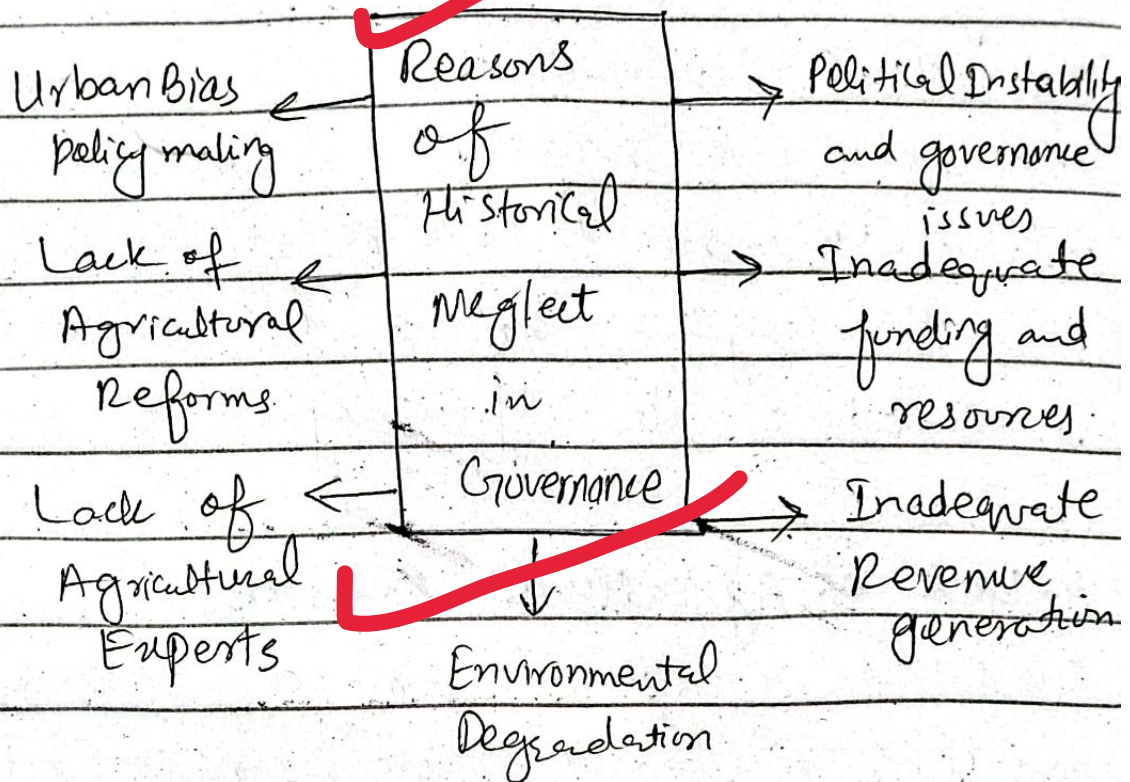 Reasons
of
Historical
Neglect
in
Governance
Urban Bias
policy making
Lack of
Agricultural
Reforms
Lack of
Agricultural
Experts
Political Instability
and governance
issues
Inadequate
funding and
resources.
Inadequate
Revenue
generation
Environmental
Degradation